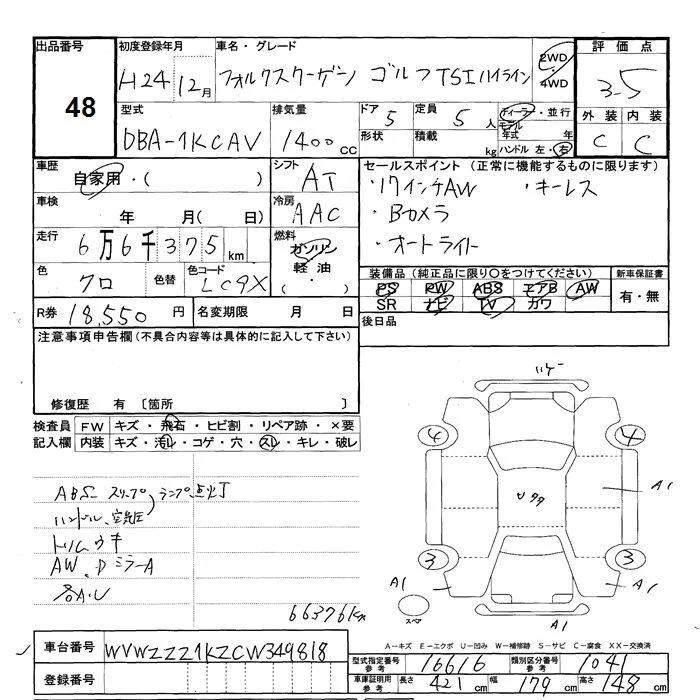 出品番号 48
初度登録年月 H24 12月
車名・グレード フォルクスワーゲン ゴルフTSIハイライン
2WD・4WD
評価点 3.5
外装 C 内装 C
型式 DBA-1KCAV
排気量 1400cc
ドア 5 形状
定員 5人 積載 kg
ディーラー・並行
モデル年式 年
ハンドル 左・右
車歴 自家用・( )
シフト AT
車検 年 月(日)
冷房 AAC
走行 6万6千375km
燃料 ガソリン 軽油 ( ・ )
色 クロ 色替 色コード LC9X
R券 18,550円
名変期限 月 日
セールスポイント(正常に機能するものに限ります)
・17インチAW ・キーレス
・Bカメラ
・オートライト
装備品(純正品に限り○をつけてください)
PS PW ABS エアB AW
SR ナビ TV カワ
新車保証書 有・無
後日品
注意事項申告欄(不具合内容等は具体的に記入して下さい)
修復歴 有 〔箇所 〕
検査員記入欄
FW キズ・飛石・ヒビ割・リペア跡・×要
内装 キズ・汚れ・コゲ・穴・スレ・キレ・破レ
ランプ点灯
ハンドル、空気圧
トリムウキ
AW、Dミラー A
各A・U
66376km
ハゲ
4 4
A1
3 3
A1 A1
A1
スペア
A-キズ E-エクボ U-凹み W-補修跡 S-サビ C-腐食 XX-交換済
車台番号 WVWZZZ1KZCW349818
登録番号
型式指定番号参考 16616 類別区分番号参考 1041
車庫証明用参考 長さ 421cm 幅 179cm 高さ 148cm